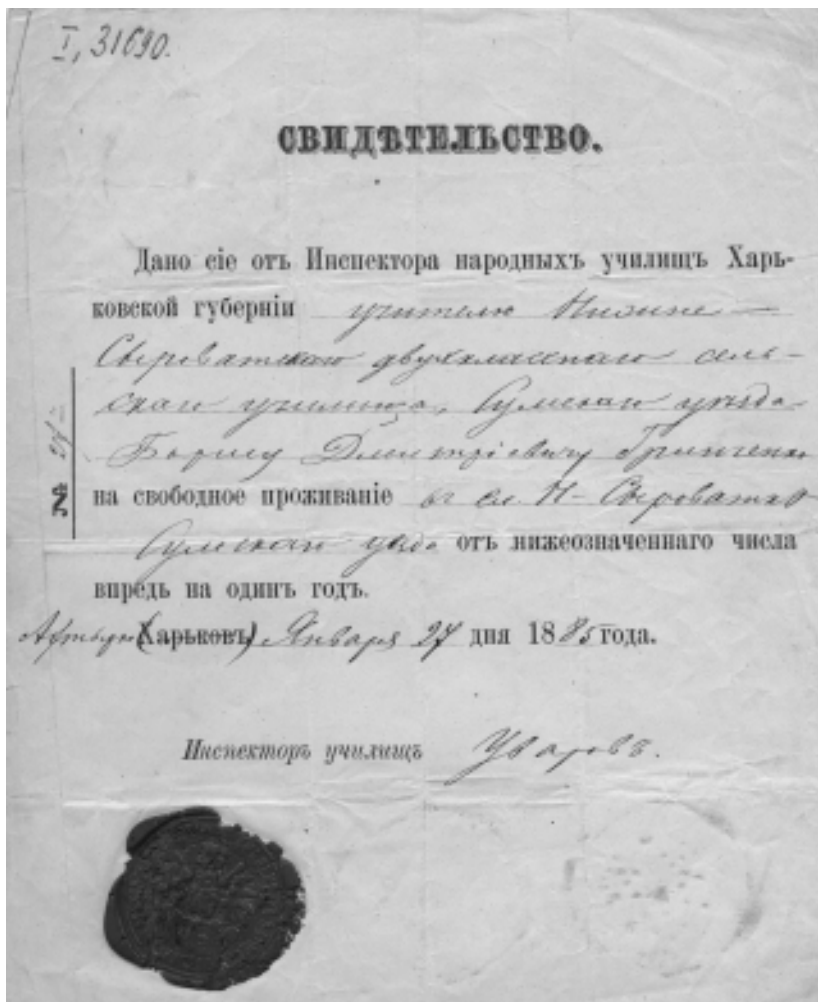 I, 31690.
СВИДѢТЕЛЬСТВО.
Дано сіе отъ Инспектора народныхъ училищъ Харь-
ковской губерніи учителю Нижне-
Сыроватскаго двухкласснаго сель-
скаго училища, Сумскаго уѣзда
Борису Дмитріевичу Гринченко
на свободное проживаніе въ сл. Н-Сыроватка
Сумскаго уѣзда отъ нижеозначеннаго числа
впредь на одинъ годъ.
(Харьковъ) Января 27 дня 1885 года.
Инспекторъ училищъ Уваровъ.
№